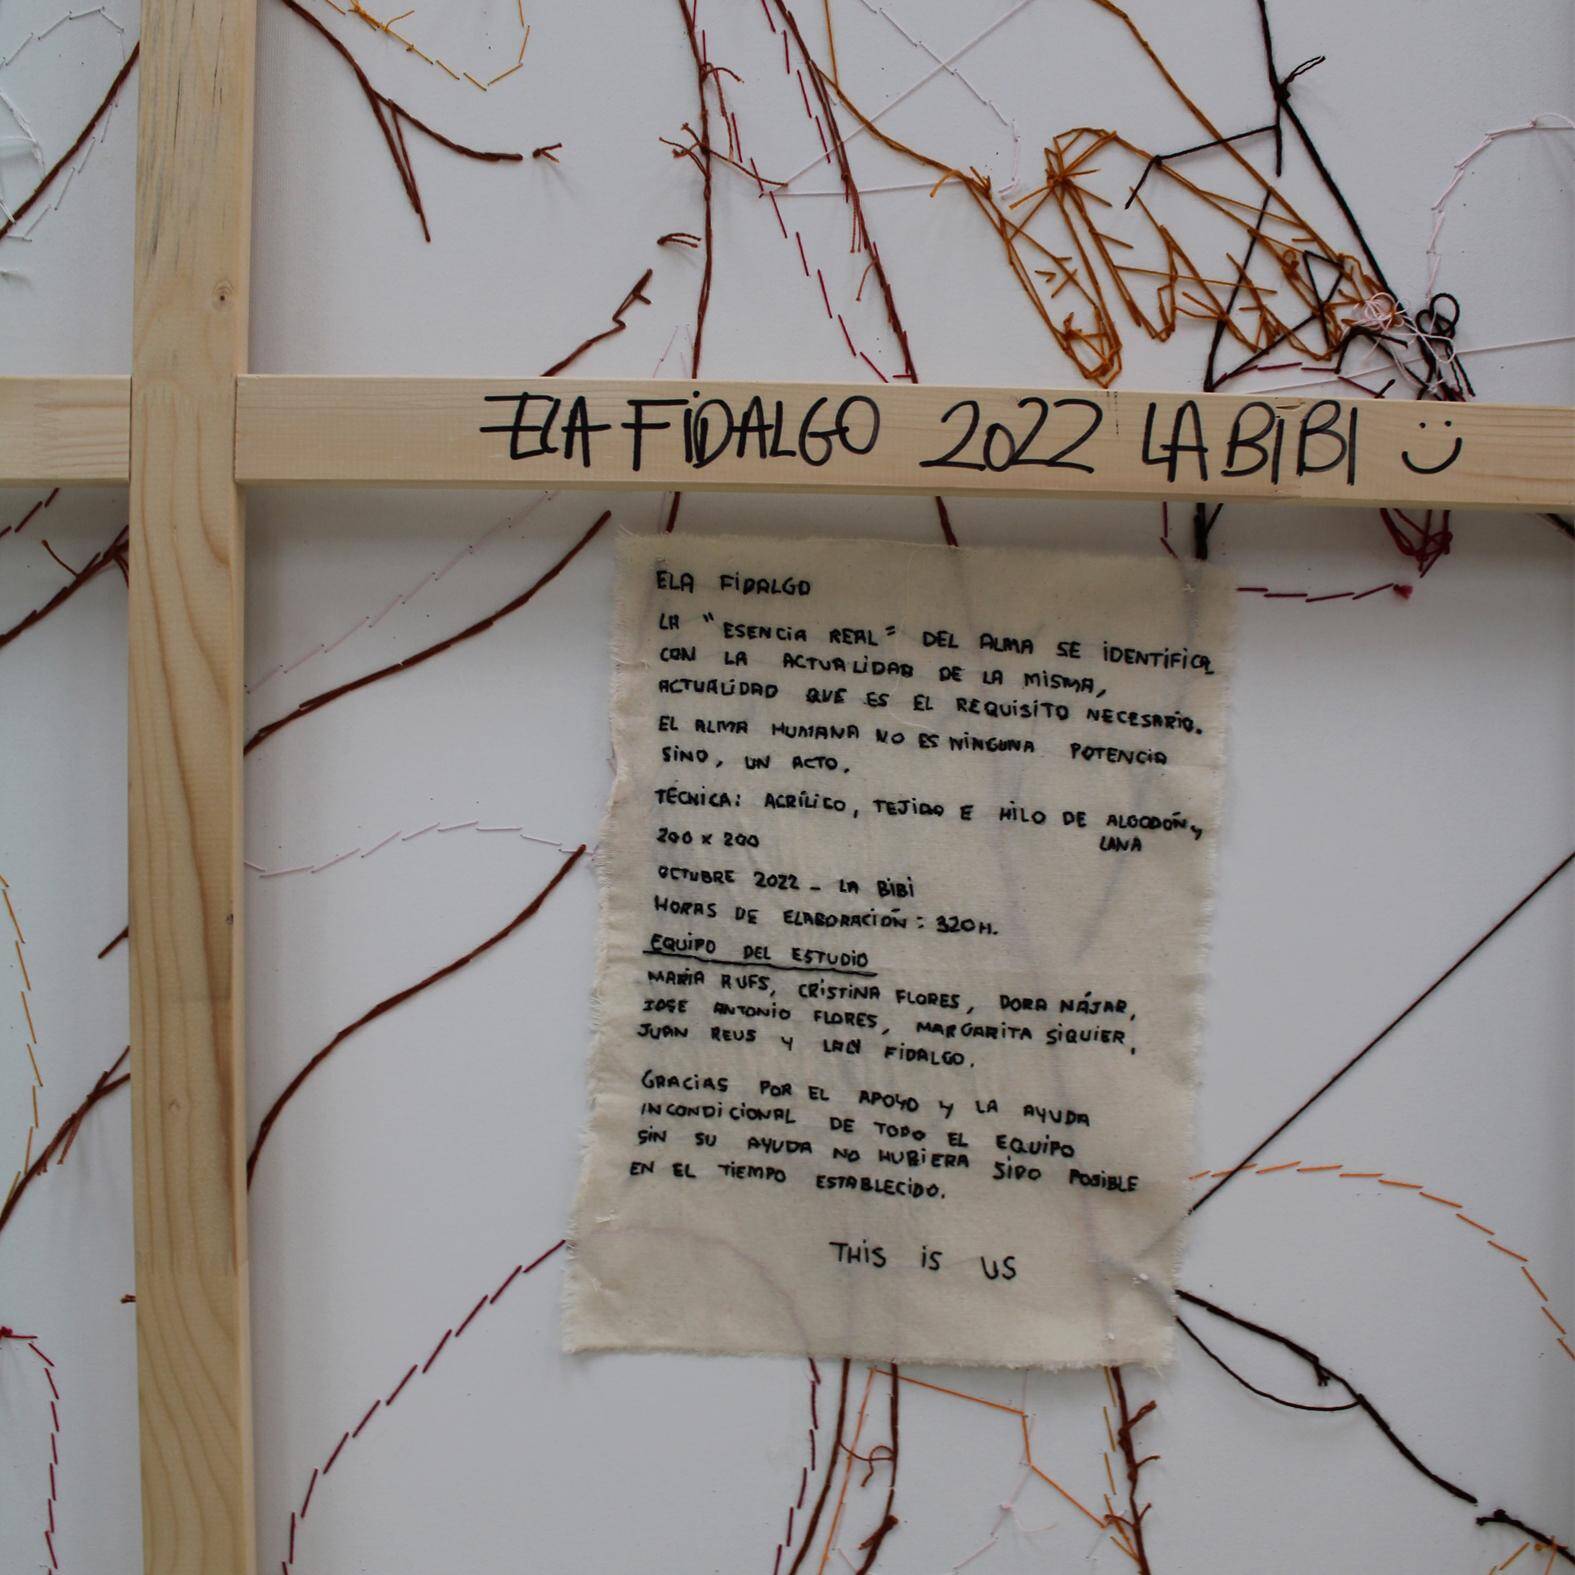 ELA FiDALGO 2022 LA BiBI :)
ELA FiDALGO
LA "ESENCiA REAL" DEL ALMA SE iDENTiFiCA
CON LA ACTUALIDAD DE LA MiSMA,
ACTUALiDAD QUE ES EL REQUiSiTO NECESARiO.
EL ALMA HUMANA NO ES NiNGUNA POTENCiA
SiNO, UN ACTO.
TÉCNiCA: ACRÍLiCO, TEJiDO E HiLO DE ALGODÓN y
LANA
200 x 200
OCTUBRE 2022 - LA BiBi
HORAS DE ELABORACiÓN: 320H.
EQUiPO DEL ESTUDiO
MARÍA RUFS, CRiSTiNA FLORES, DORA NÁJAR,
JOSE ANTONiO FLORES, MARGARiTA SiQUiER,
JUAN REUS Y FiDALGO.
GRACiAS POR EL APOYO Y LA AYUDA
INCONDiCiONAL DE TODO EL EQUiPO
SiN SU AYUDA NO HUBiERA SiDO POSiBLE
EN EL TiEMPO ESTABLECiDO.
THiS iS US